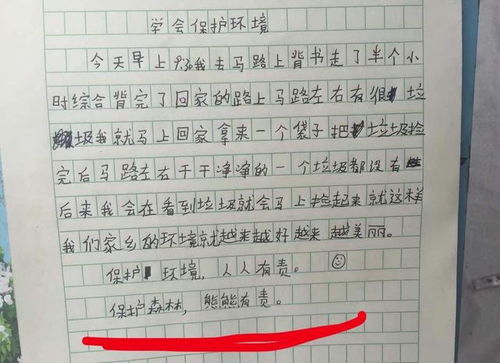 学会保护环境
今天早上9:30我去马路上背书走了半个小
时综合背完了回家的路上马路左右有很 垃
圾我就马上回家拿来一个袋子把垃圾捡
完后马路左右干干净净的一个垃圾都没有
后来我会在看到垃圾就会马上捡起来就这样
我们家乡的环境就越来越好越来越美丽。
保护环境，人人有责。
保护森林，熊熊有责。